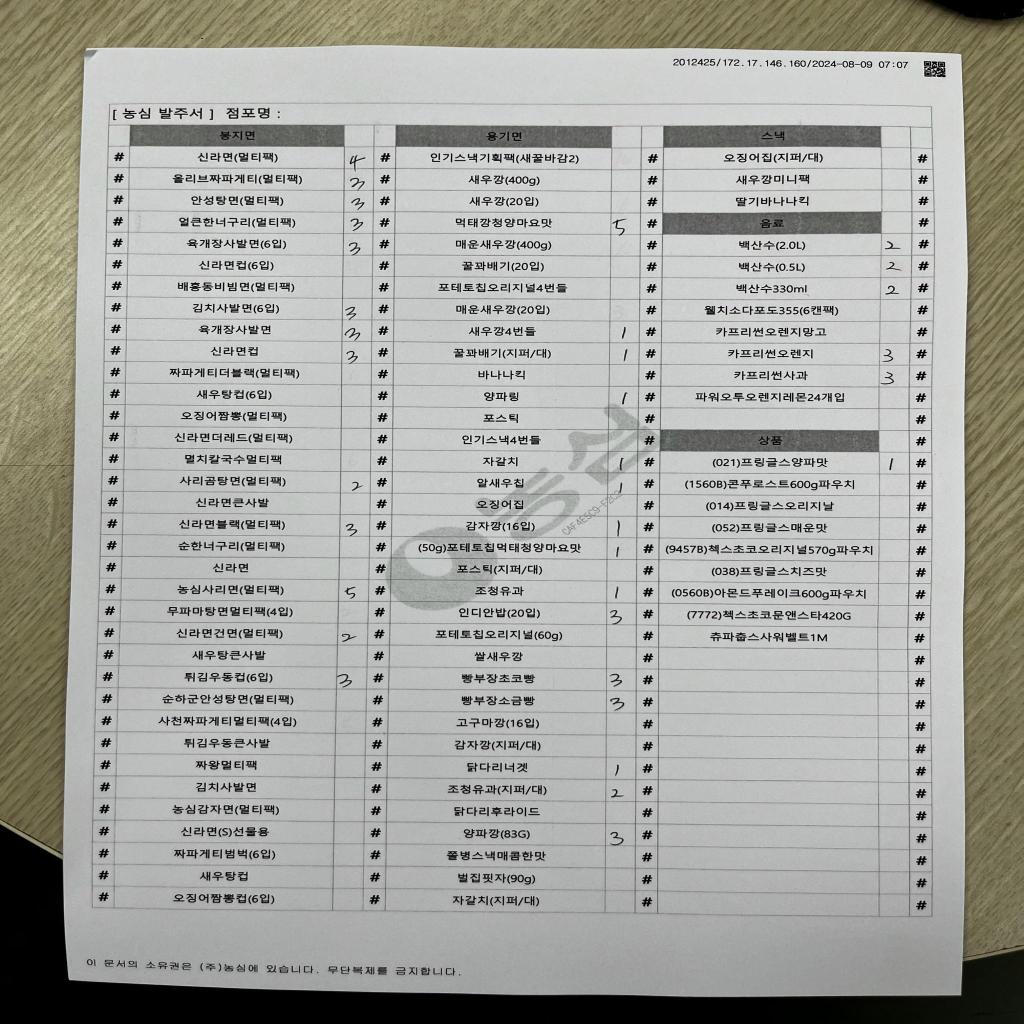 2012425/172.17.146.160/2024-08-09 07:07
[ 농심 발주서 ] 점포명 :
봉지면 용기면 스낵
# 신라면(멀티팩) 4 # 인기스낵기획팩(새꿀바감2) # 오징어집(지퍼/대) #
# 올리브짜파게티(멀티팩) 3 # 새우깡(400g) # 새우깡미니팩 #
# 안성탕면(멀티팩) 3 # 새우깡(20입) # 딸기바나나킥 #
# 얼큰한너구리(멀티팩) 3 # 먹태깡청양마요맛 5 # 음료 #
# 육개장사발면(6입) 3 # 매운새우깡(400g) # 백산수(2.0L) 2 #
# 신라면컵(6입) # 꿀꽈배기(20입) # 백산수(0.5L) 2 #
# 배홍동비빔면(멀티팩) # 포테토칩오리지널4번들 # 백산수330ml 2 #
# 김치사발면(6입) 3 # 매운새우깡(20입) # 웰치소다포도355(6캔팩) #
# 육개장사발면 3 # 새우깡4번들 1 # 카프리썬오렌지망고 #
# 신라면컵 3 # 꿀꽈배기(지퍼/대) 1 # 카프리썬오렌지 3 #
# 짜파게티더블랙(멀티팩) # 바나나킥 # 카프리썬사과 3 #
# 새우탕컵(6입) # 양파링 1 # 파워오투오렌지레몬24개입 #
# 오징어짬뽕(멀티팩) # 포스틱 # #
# 신라면더레드(멀티팩) # 인기스낵4번들 # 상품 #
# 멸치칼국수멀티팩 # 자갈치 1 # (021)프링글스양파맛 1 #
# 사리곰탕면(멀티팩) 2 # 알새우칩 1 # (1560B)콘푸로스트600g파우치 #
# 신라면큰사발 # 오징어집 # (014)프링글스오리지날 #
# 신라면블랙(멀티팩) 3 # 감자깡(16입) 1 # (052)프링글스매운맛 #
# 순한너구리(멀티팩) # (50g)포테토칩먹태청양마요맛 1 # (9457B)첵스초코오리지널570g파우치 #
# 신라면 # 포스틱(지퍼/대) # (038)프링글스치즈맛 #
# 농심사리면(멀티팩) 5 # 조청유과 1 # (0560B)아몬드푸레이크600g파우치 #
# 무파마탕면멀티팩(4입) # 인디안밥(20입) 3 # (7772)첵스초코문앤스타420G #
# 신라면건면(멀티팩) 2 # 포테토칩오리지널(60g) # 츄파춥스사워벨트1M #
# 새우탕큰사발 # 쌀새우깡 # #
# 튀김우동컵(6입) 3 # 빵부장초코빵 3 # #
# 순하군안성탕면(멀티팩) # 빵부장소금빵 3 # #
# 사천짜파게티멀티팩(4입) # 고구마깡(16입) # #
# 튀김우동큰사발 # 감자깡(지퍼/대) # #
# 짜왕멀티팩 # 닭다리너겟 1 # #
# 김치사발면 # 조청유과(지퍼/대) 2 # #
# 농심감자면(멀티팩) # 닭다리후라이드 # #
# 신라면(S)선물용 # 양파깡(83G) 3 # #
# 짜파게티범벅(6입) # 쫄병스낵매콤한맛 # #
# 새우탕컵 # 벌집핏자(90g) # #
# 오징어짬뽕컵(6입) # 자갈치(지퍼/대) # #
농심
이 문서의 소유권은 (주)농심에 있습니다. 무단복제를 금지합니다.